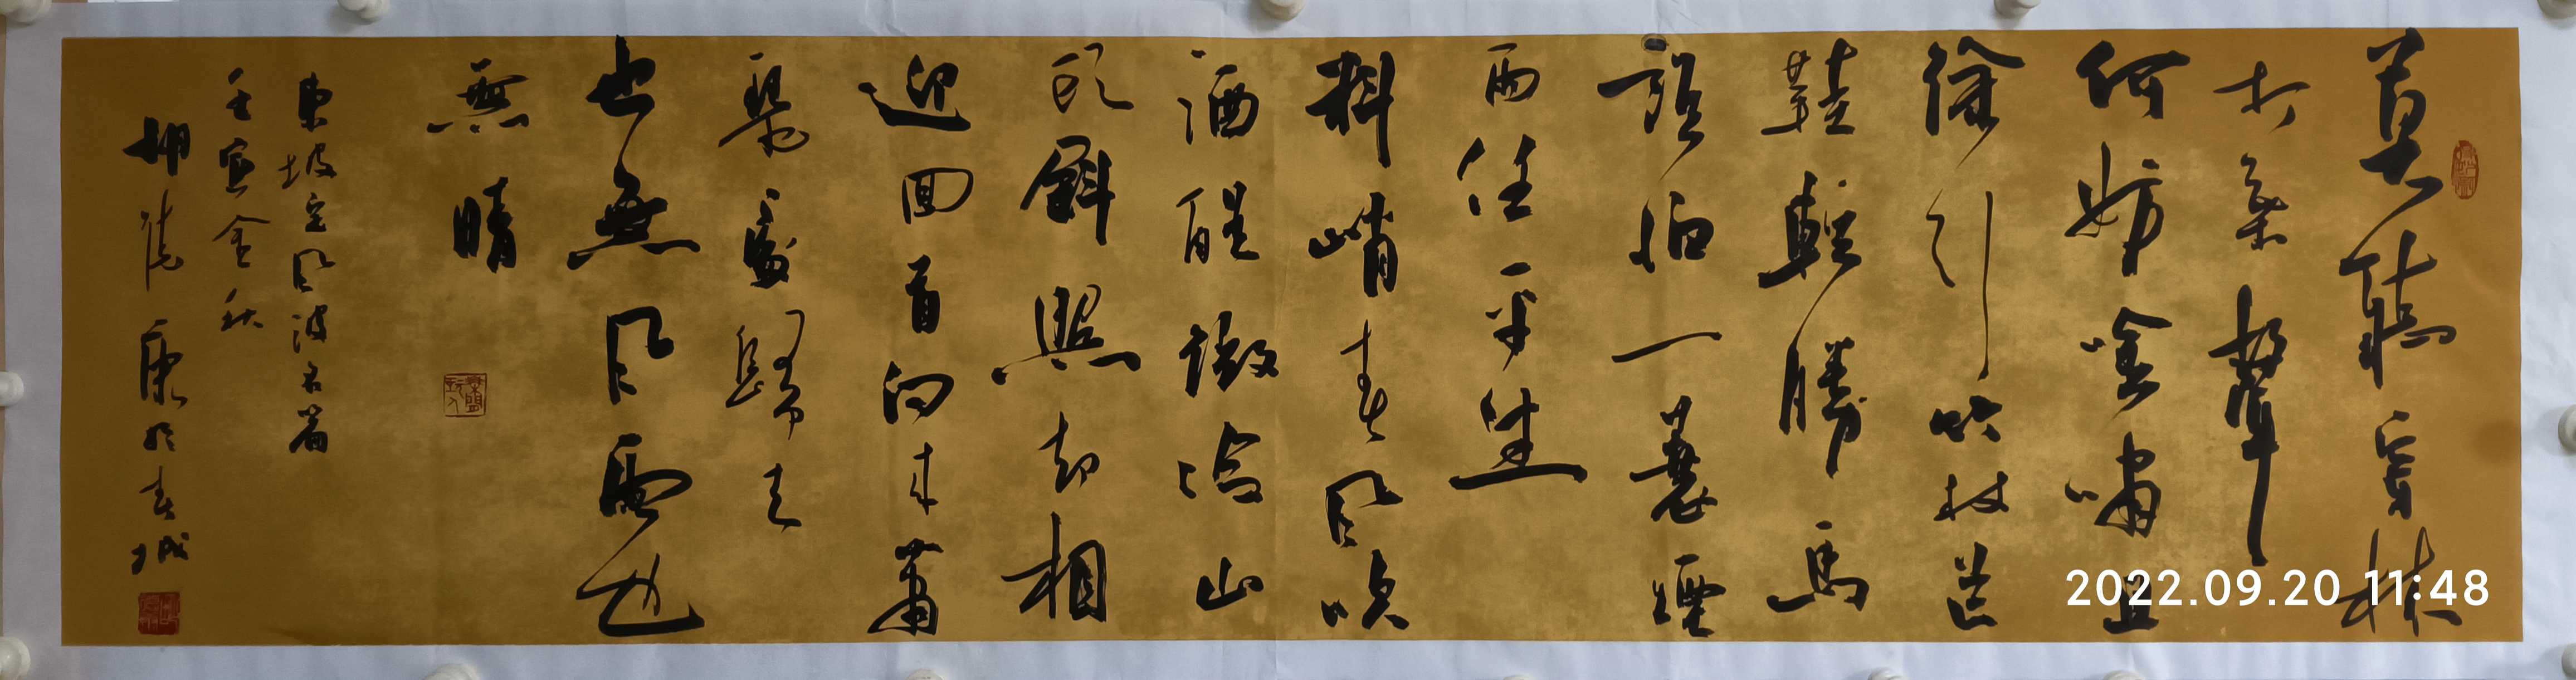 莫聽穿林
打葉聲
何妨吟嘯且
徐行竹杖芒
鞋輕勝馬
誰怕一蓑煙
雨任平生
料峭春風吹
酒醒微冷山
頭斜照却相
迎回首向来蕭
瑟處歸去
也無風雨也
無晴
東坡定風波名篇
壬寅金秋
胡康於春城
2022.09.20 11:48